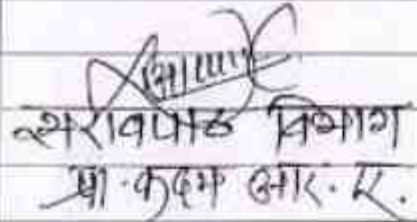 सरावपाठ विभाग
प्रा. कदम आर. ए.